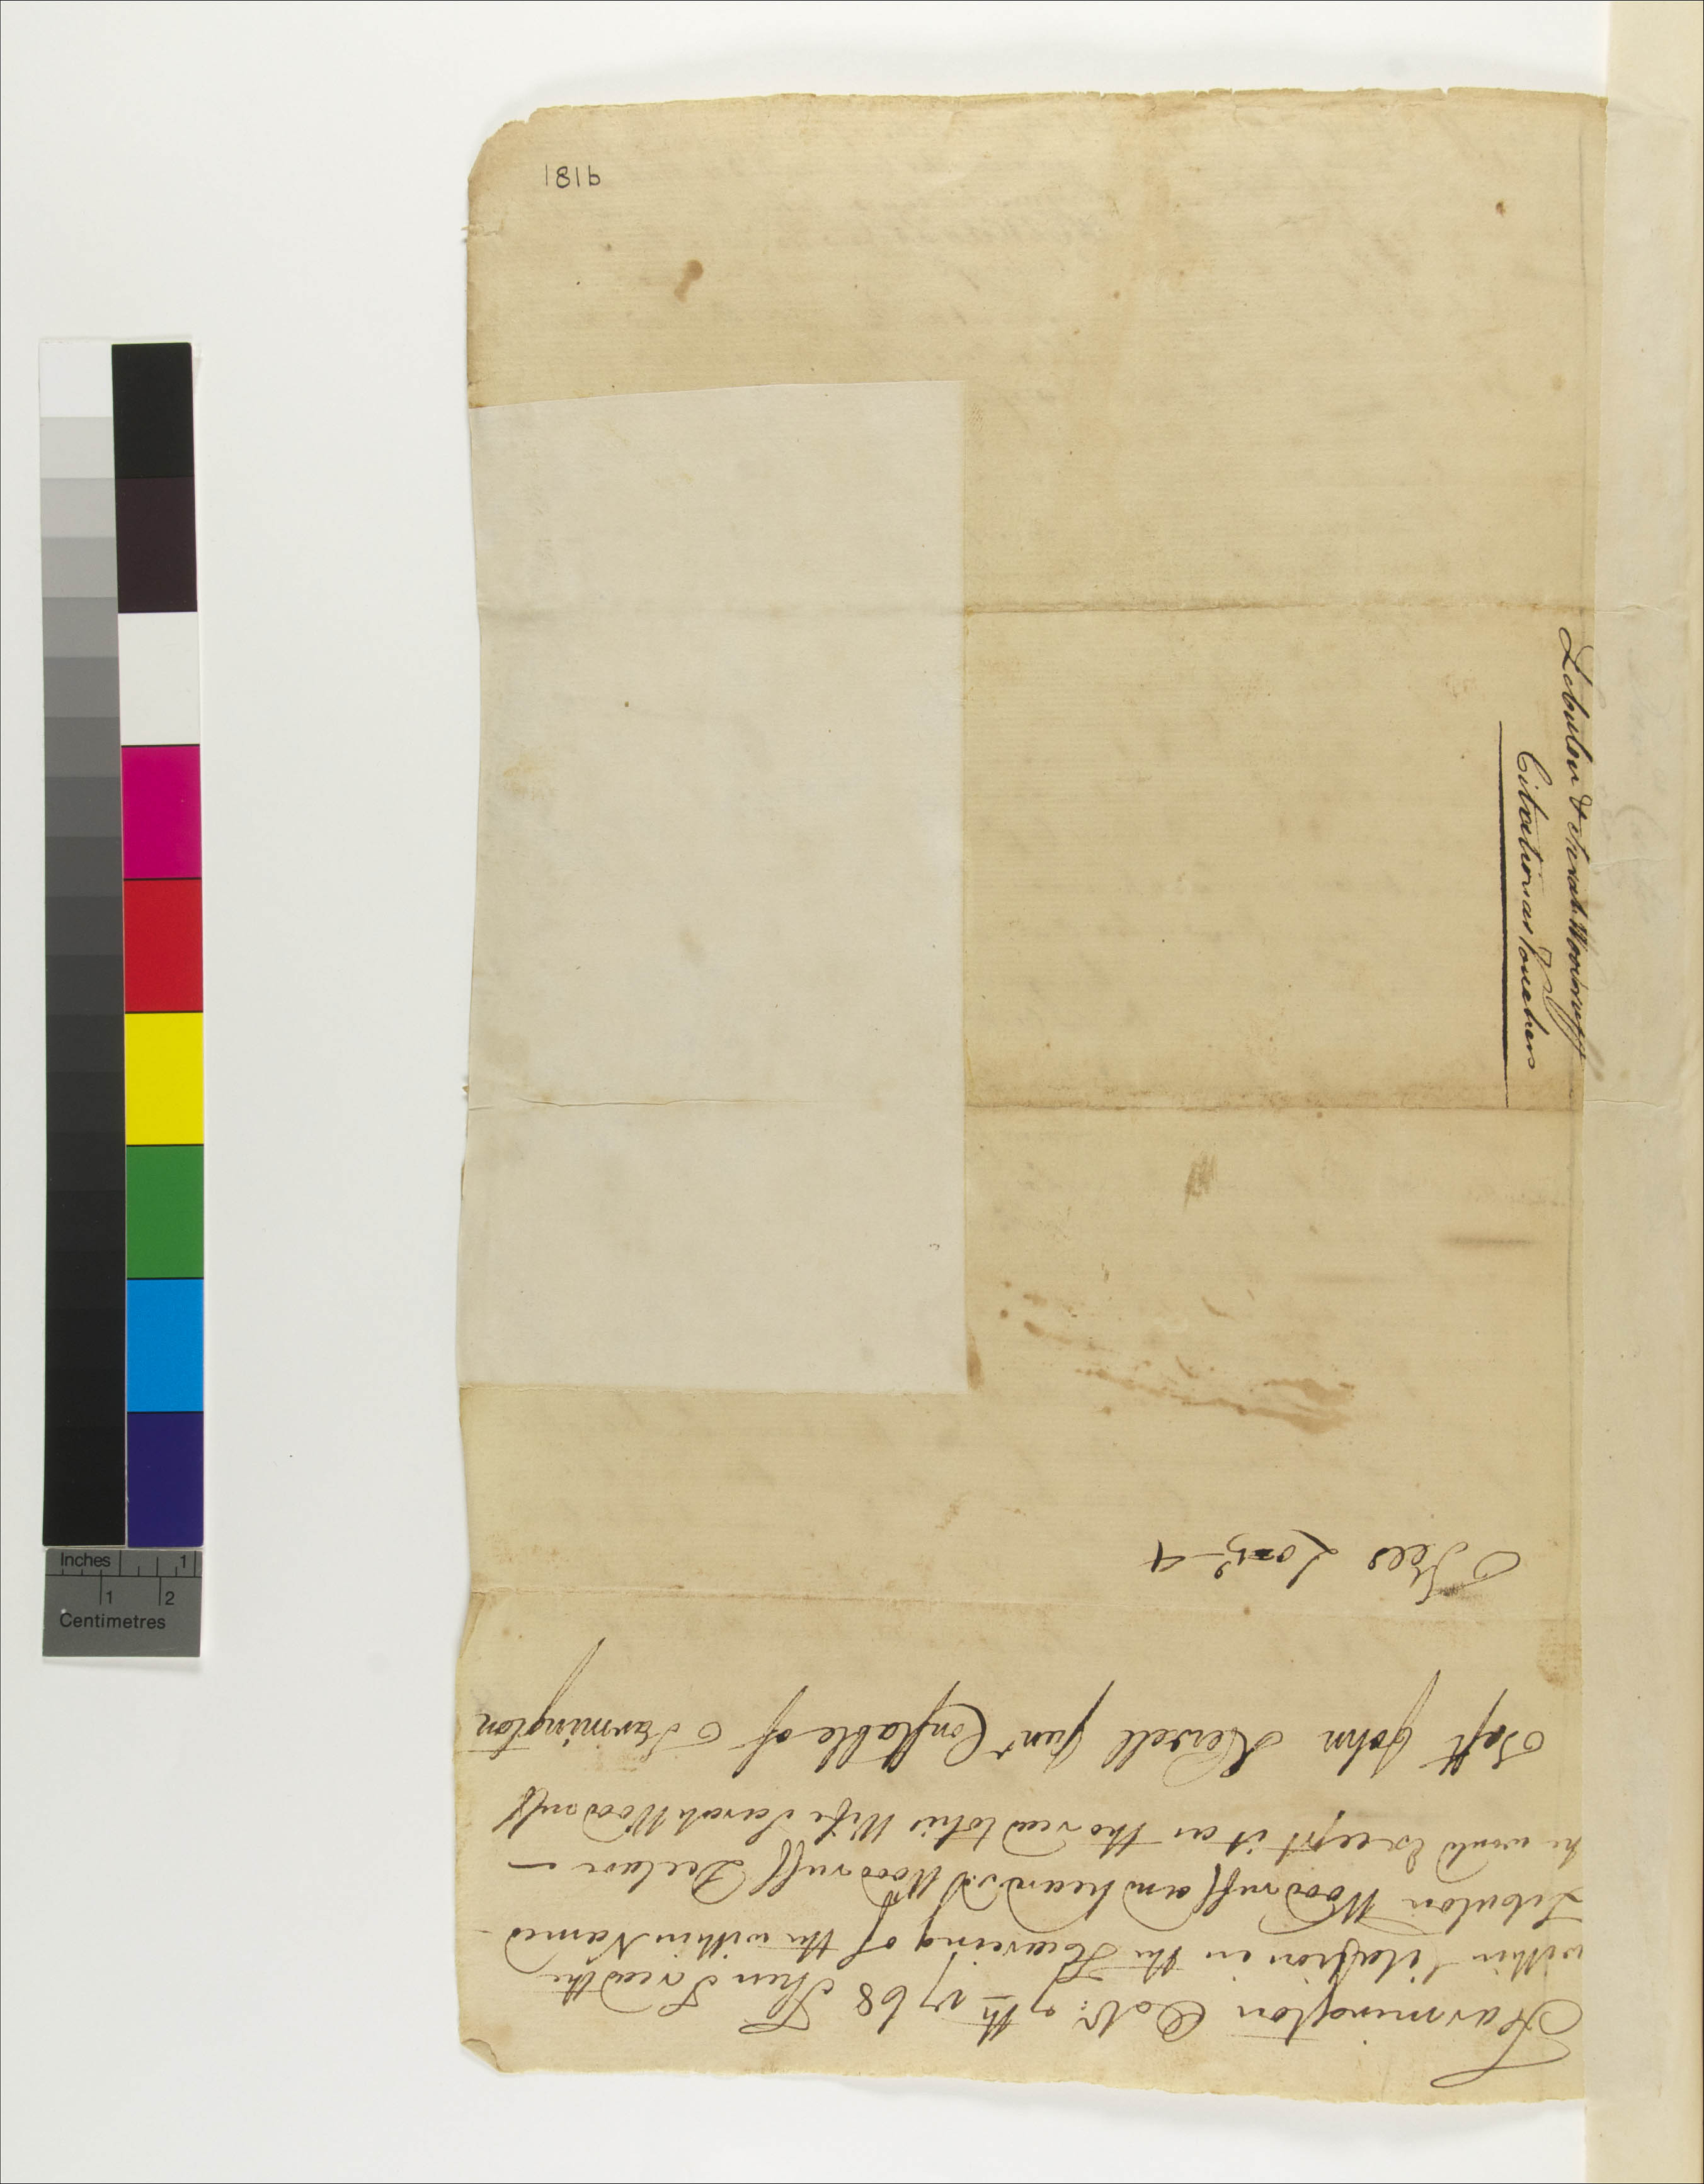 181b
Zebulon & Sarah Woodruff
Citation as Vouchers
Farmington Octr. 7th 1768 Then I read the
within Citation in the Hearing of the within Named
Zebulon Woodruff and heard sd Woodruff Declare
he would Except it as tho read to his Wife Sarah Woodruff
Test John Newell Junr Constable of Farmington
Fees
Inches 1
1 2
Centimetres